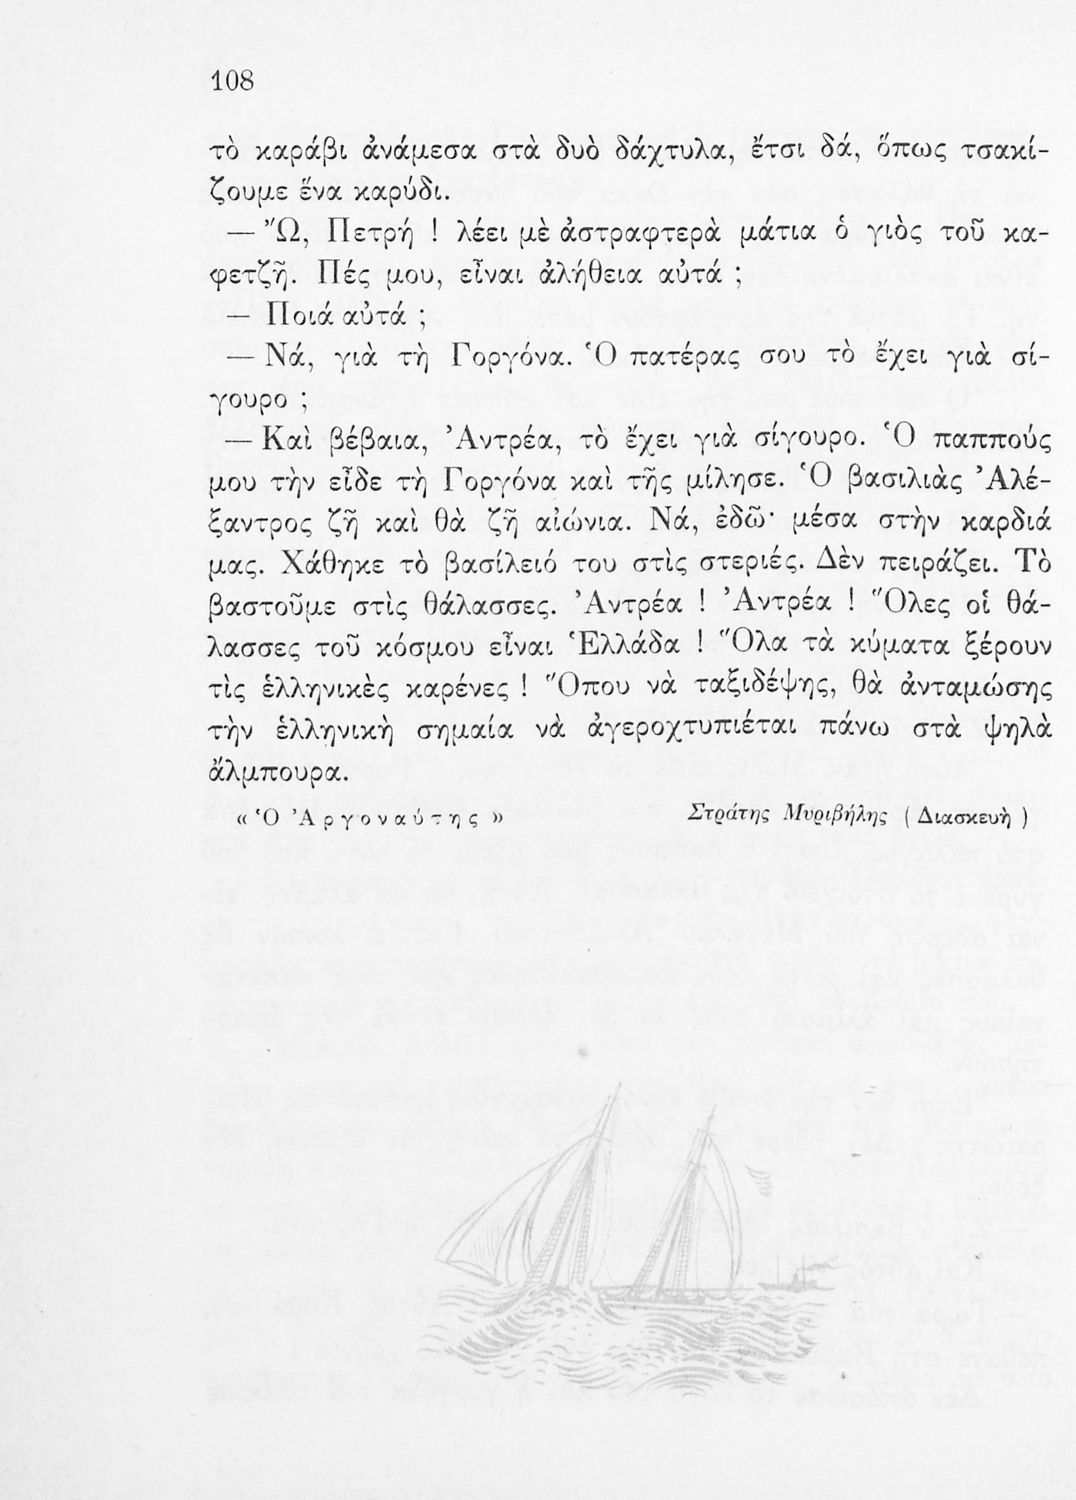 108
τὸ καράβι ἀνάμεσα στὰ δυὸ δάχτυλα, ἔτσι δά, ὅπως τσακί-
ζουμε ἕνα καρύδι.
— Ὤ, Πετρή ! λέει μὲ ἀστραφτερὰ μάτια ὁ γιὸς τοῦ κα-
φετζῆ. Πές μου, εἶναι ἀλήθεια αὐτά ;
— Ποιά αὐτά ;
— Νά, γιὰ τὴ Γοργόνα. Ὁ πατέρας σου τὸ ἔχει γιὰ σί-
γουρο ;
— Καὶ βέβαια, Ἀντρέα, τὸ ἔχει γιὰ σίγουρο. Ὁ παππούς
μου τὴν εἶδε τὴ Γοργόνα καὶ τῆς μίλησε. Ὁ βασιλιὰς Ἀλέ-
ξαντρος ζῆ καὶ θὰ ζῆ αἰώνια. Νά, ἐδῶ· μέσα στὴν καρδιά
μας. Χάθηκε τὸ βασίλειό του στὶς στεριές. Δὲν πειράζει. Τὸ
βαστοῦμε στὶς θάλασσες. Ἀντρέα ! Ἀντρέα ! Ὅλες οἱ θά-
λασσες τοῦ κόσμου εἶναι Ἑλλάδα ! Ὅλα τὰ κύματα ξέρουν
τὶς ἑλληνικὲς καρένες ! Ὅπου νὰ ταξιδέψης, θὰ ἀνταμώσης
τὴν ἑλληνικὴ σημαία νὰ ἀγεροχτυπιέται πάνω στὰ ψηλὰ
ἄλμπουρα.
« Ὁ Ἀργοναύτης » Στράτης Μυριβήλης ( Διασκευὴ )